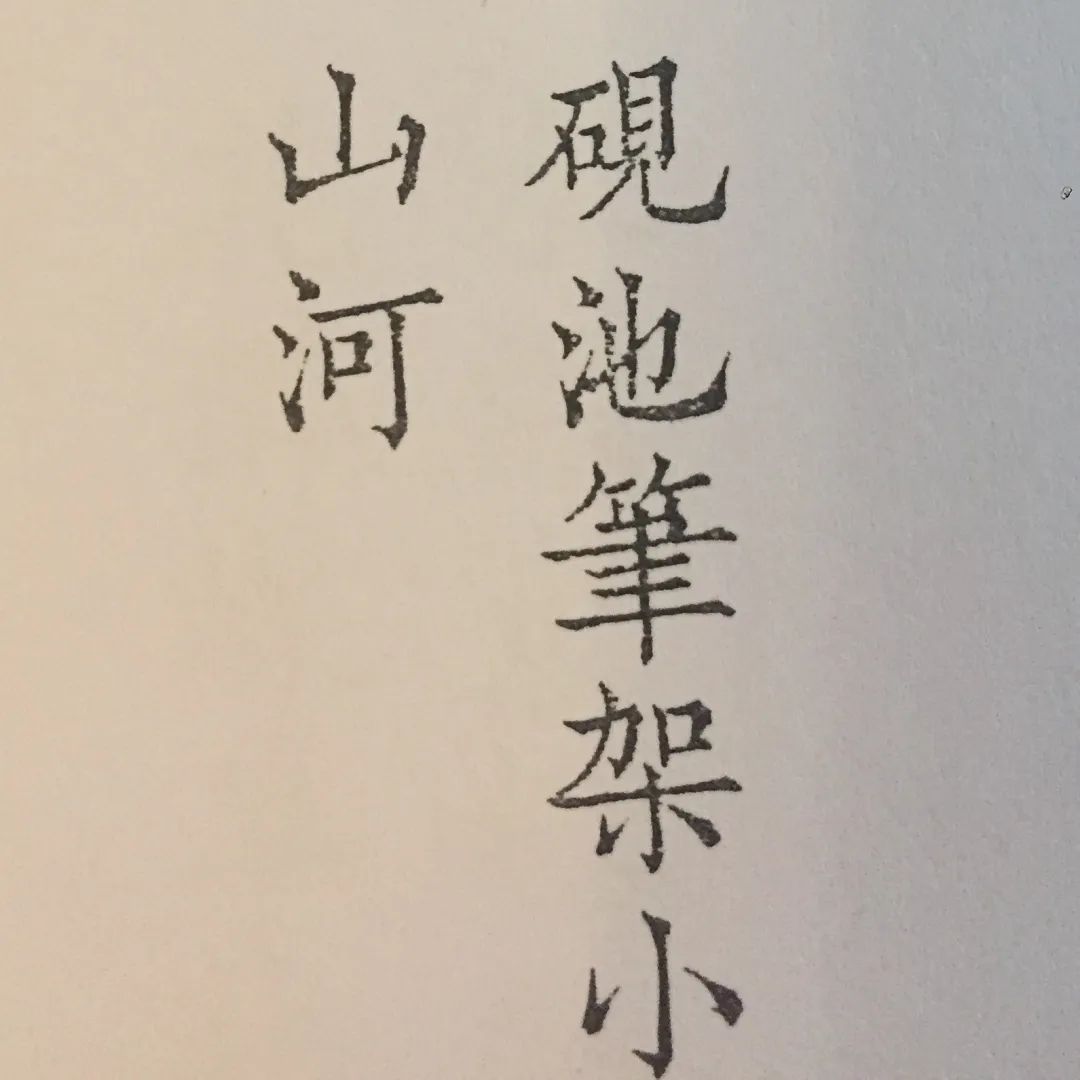 硯池筆架小
山河